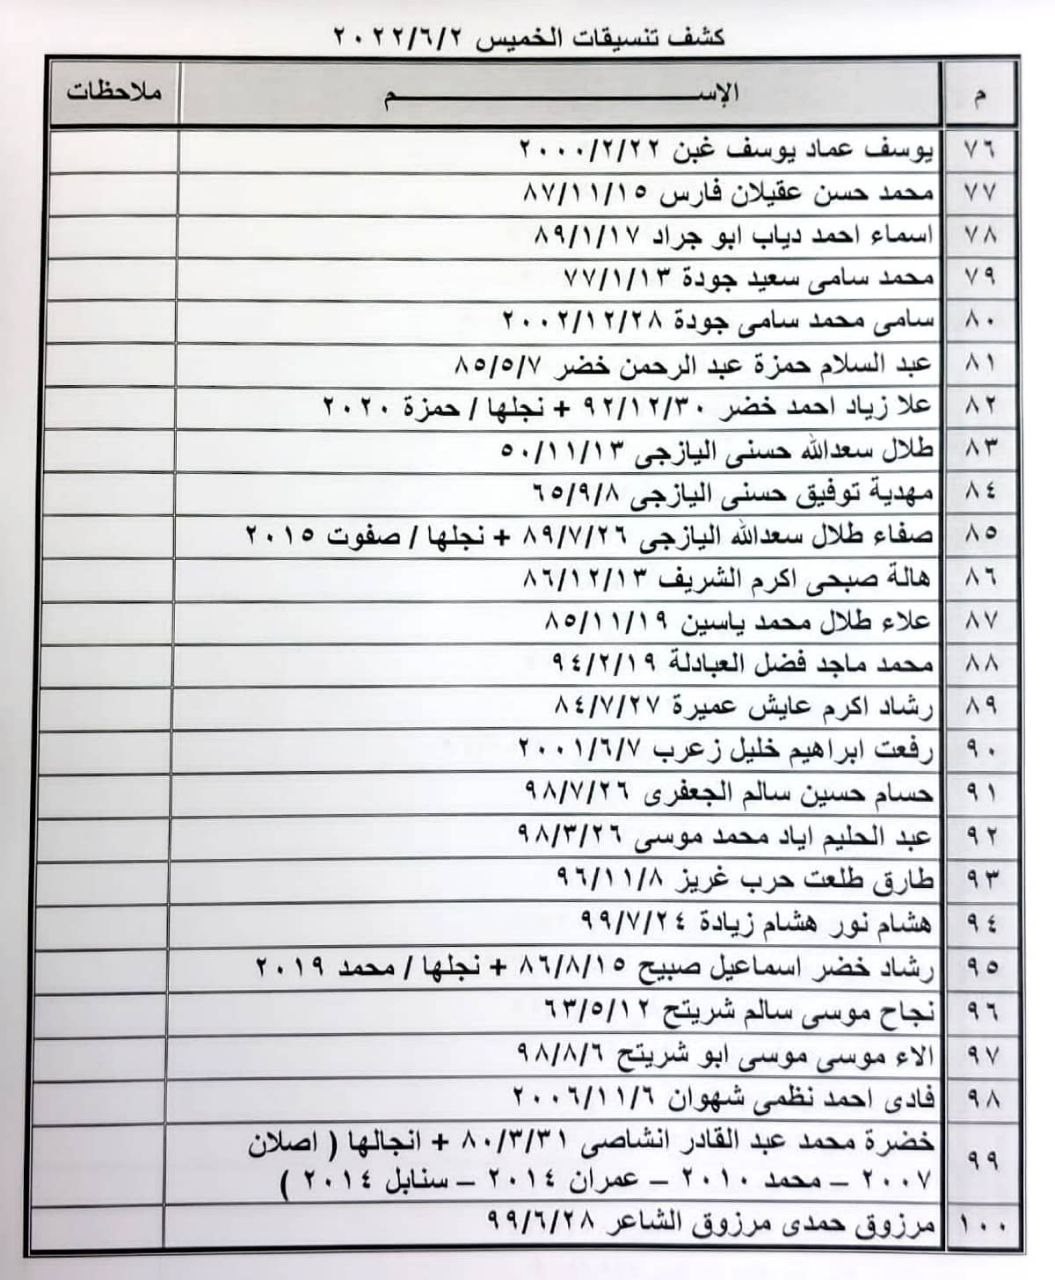 كشف تنسيقات الخميس ٢٠٢٢/٦/٢
م الإســــــــــــم ملاحظات
٧٦ يوسف عماد يوسف غبن ٢٠٠٠/٢/٢٢
٧٧ محمد حسن عقيلان فارس ٨٧/١١/١٥
٧٨ اسماء احمد دياب ابو جراد ٨٩/١/١٧
٧٩ محمد سامى سعيد جودة ٧٧/١/١٣
٨٠ سامى محمد سامى جودة ٢٠٠٢/١٢/٢٨
٨١ عبد السلام حمزة عبد الرحمن خضر ٨٥/٥/٧
٨٢ علا زياد احمد خضر ٩٢/١٢/٣٠ + نجلها / حمزة ٢٠٢٠
٨٣ طلال سعدالله حسنى اليازجى ٥٠/١١/١٣
٨٤ مهدية توفيق حسنى اليازجى ٦٥/٩/٨
٨٥ صفاء طلال سعدالله اليازجى ٨٩/٧/٢٦ + نجلها / صفوت ٢٠١٥
٨٦ هالة صبحى اكرم الشريف ٨٦/١٢/١٣
٨٧ علاء طلال محمد ياسين ٨٥/١١/١٩
٨٨ محمد ماجد فضل العبادلة ٩٤/٢/١٩
٨٩ رشاد اكرم عايش عميرة ٨٤/٧/٢٧
٩٠ رفعت ابراهيم خليل زعرب ٢٠٠١/٦/٧
٩١ حسام حسين سالم الجعفرى ٩٨/٧/٢٦
٩٢ عبد الحليم اياد محمد موسى ٩٨/٣/٢٦
٩٣ طارق طلعت حرب غريز ٩٦/١١/٨
٩٤ هشام نور هشام زيادة ٩٩/٧/٢٤
٩٥ رشاد خضر اسماعيل صبيح ٨٦/٨/١٥ + نجلها / محمد ٢٠١٩
٩٦ نجاح موسى سالم شريتح ٦٣/٥/١٢
٩٧ الاء موسى موسى ابو شريتح ٩٨/٨/٦
٩٨ فادى احمد نظمى شهوان ٢٠٠٦/١١/٦
٩٩ خضرة محمد عبد القادر انشاصى ٨٠/٣/٣١ + انجالها ( اصلان
٢٠٠٧ – محمد ٢٠١٠ – عمران ٢٠١٤ – سنابل ٢٠١٤ )
١٠٠ مرزوق حمدى مرزوق الشاعر ٩٩/٦/٢٨